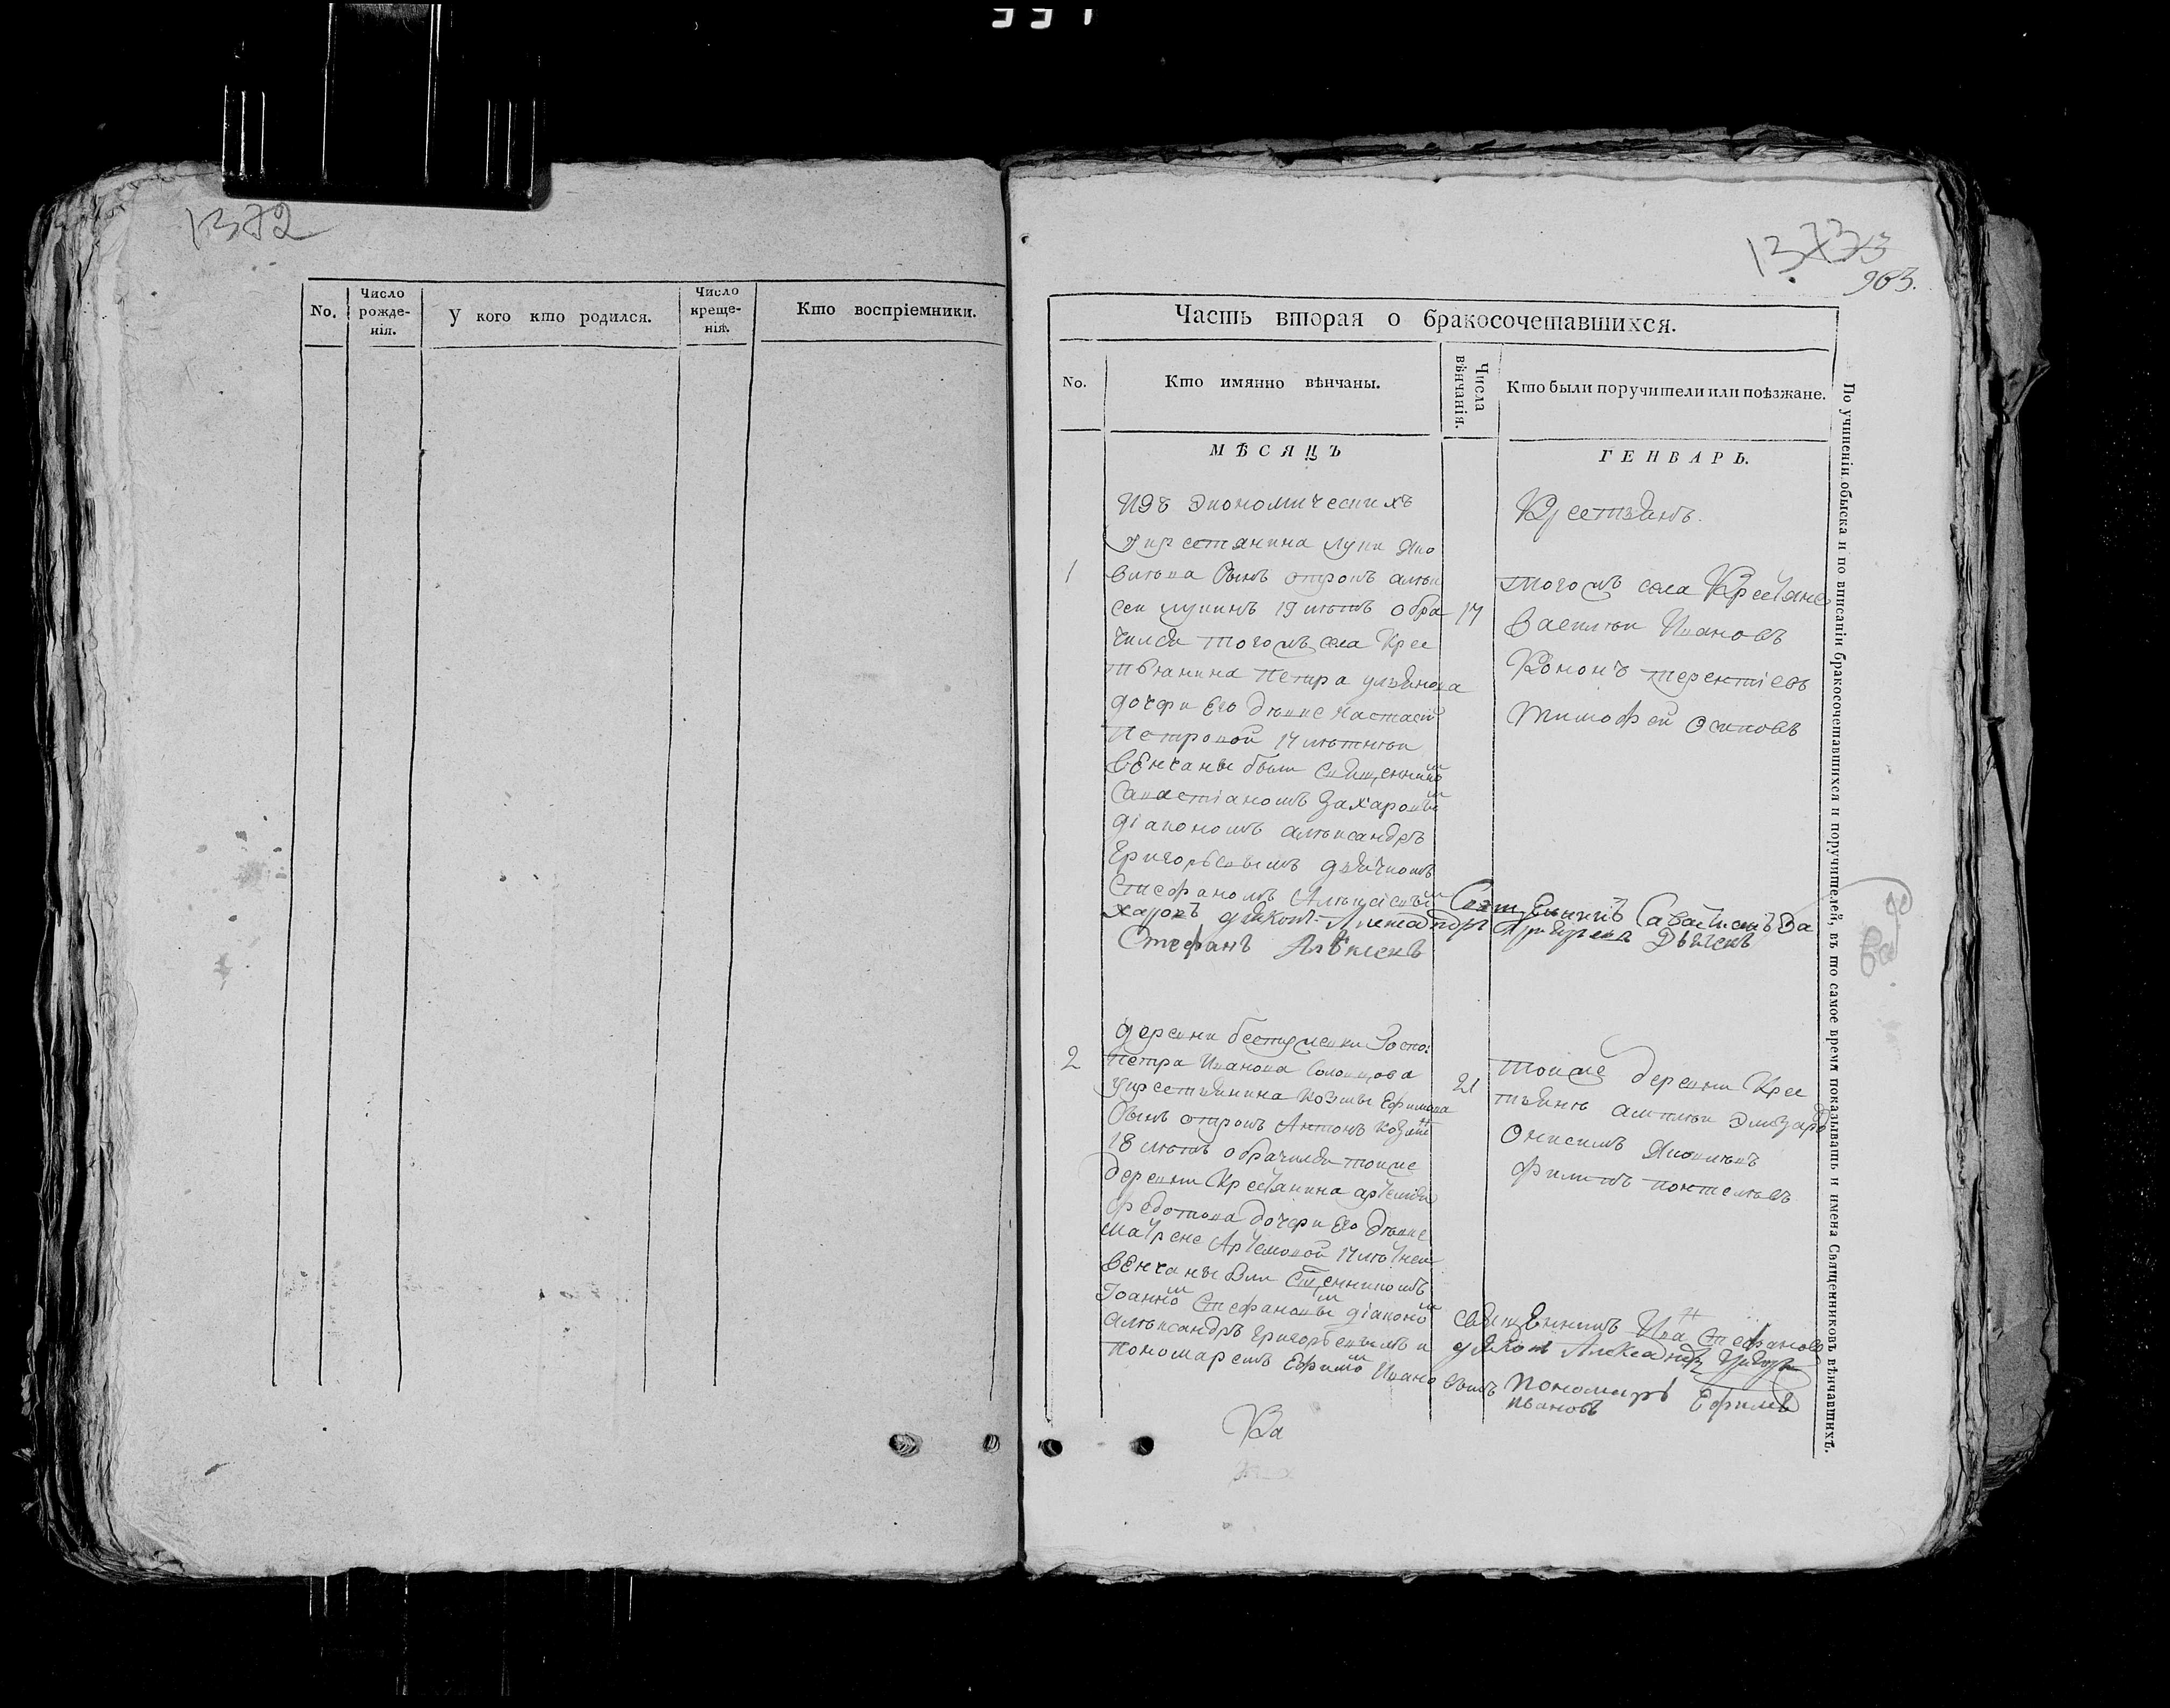 331
1372
No.
Число рожде-нія.
У кого кто родился.
Число креще-нія.
Кто воспріемники.
1373
963.
Часть вторая о бракосочетавшихся.
No.
Кто имянно вѣнчаны.
Числа вѣнчанія.
Кто были поручители или поѣзжане.
МѢСЯЦЪ
ГЕНВАРЬ.
Изъ экономическихъ
Крестьянъ.
крестянина луки Яко
1
влева сынъ отрокъ алѣк
сеи лукинъ 19 лѣтъ обра
17
чился тогожъ села Крес
тьянина Петра ульянова
дочери Его дѣвке настасіи
Петровой 17 лѣтнеи
вЕнчаны были священником
Савастіаномъ Захаровым
діакономъ алѣксандръ
Григорьевымъ дьячкомъ
Стефаномъ Алѣксіевым
тогожъ села Крестяне
Василеи Ивановъ
Кононъ терентіевъ
Тимофей осиповъ
СвящЕнникъ Саватиянъ За
харовъ
Стефанъ Алѣксеевъ
2
деревни
Петра Иванова
крестьянина козмы Ефимова
21
сынъ отрокъ Антонъ козмин
18 лѣтъ обрачился тоиже
деревни Крестянина артемья
федотова дочери Его дѣвке
матрене Артемовой 17 лѣтнеи
вЕнчаны были Священникомъ
Іоанном Стефановым діаконом
алѣксандръ григорьевымъ и
пономаремъ Ефимом Ивано
вымъ
тоиже деревни Крес
тьяне
Онисимъ Яковлевъ
филипъ
священникъ Иванъ Стефановъ
діяконъ Александръ
пономарь Ефимъ
ивановъ
По учиненіи обыска и по вписаніи бракосочетавшихся и поручителей, въ то самое время показывать и имена Священниковъ вѣнчавшихъ.